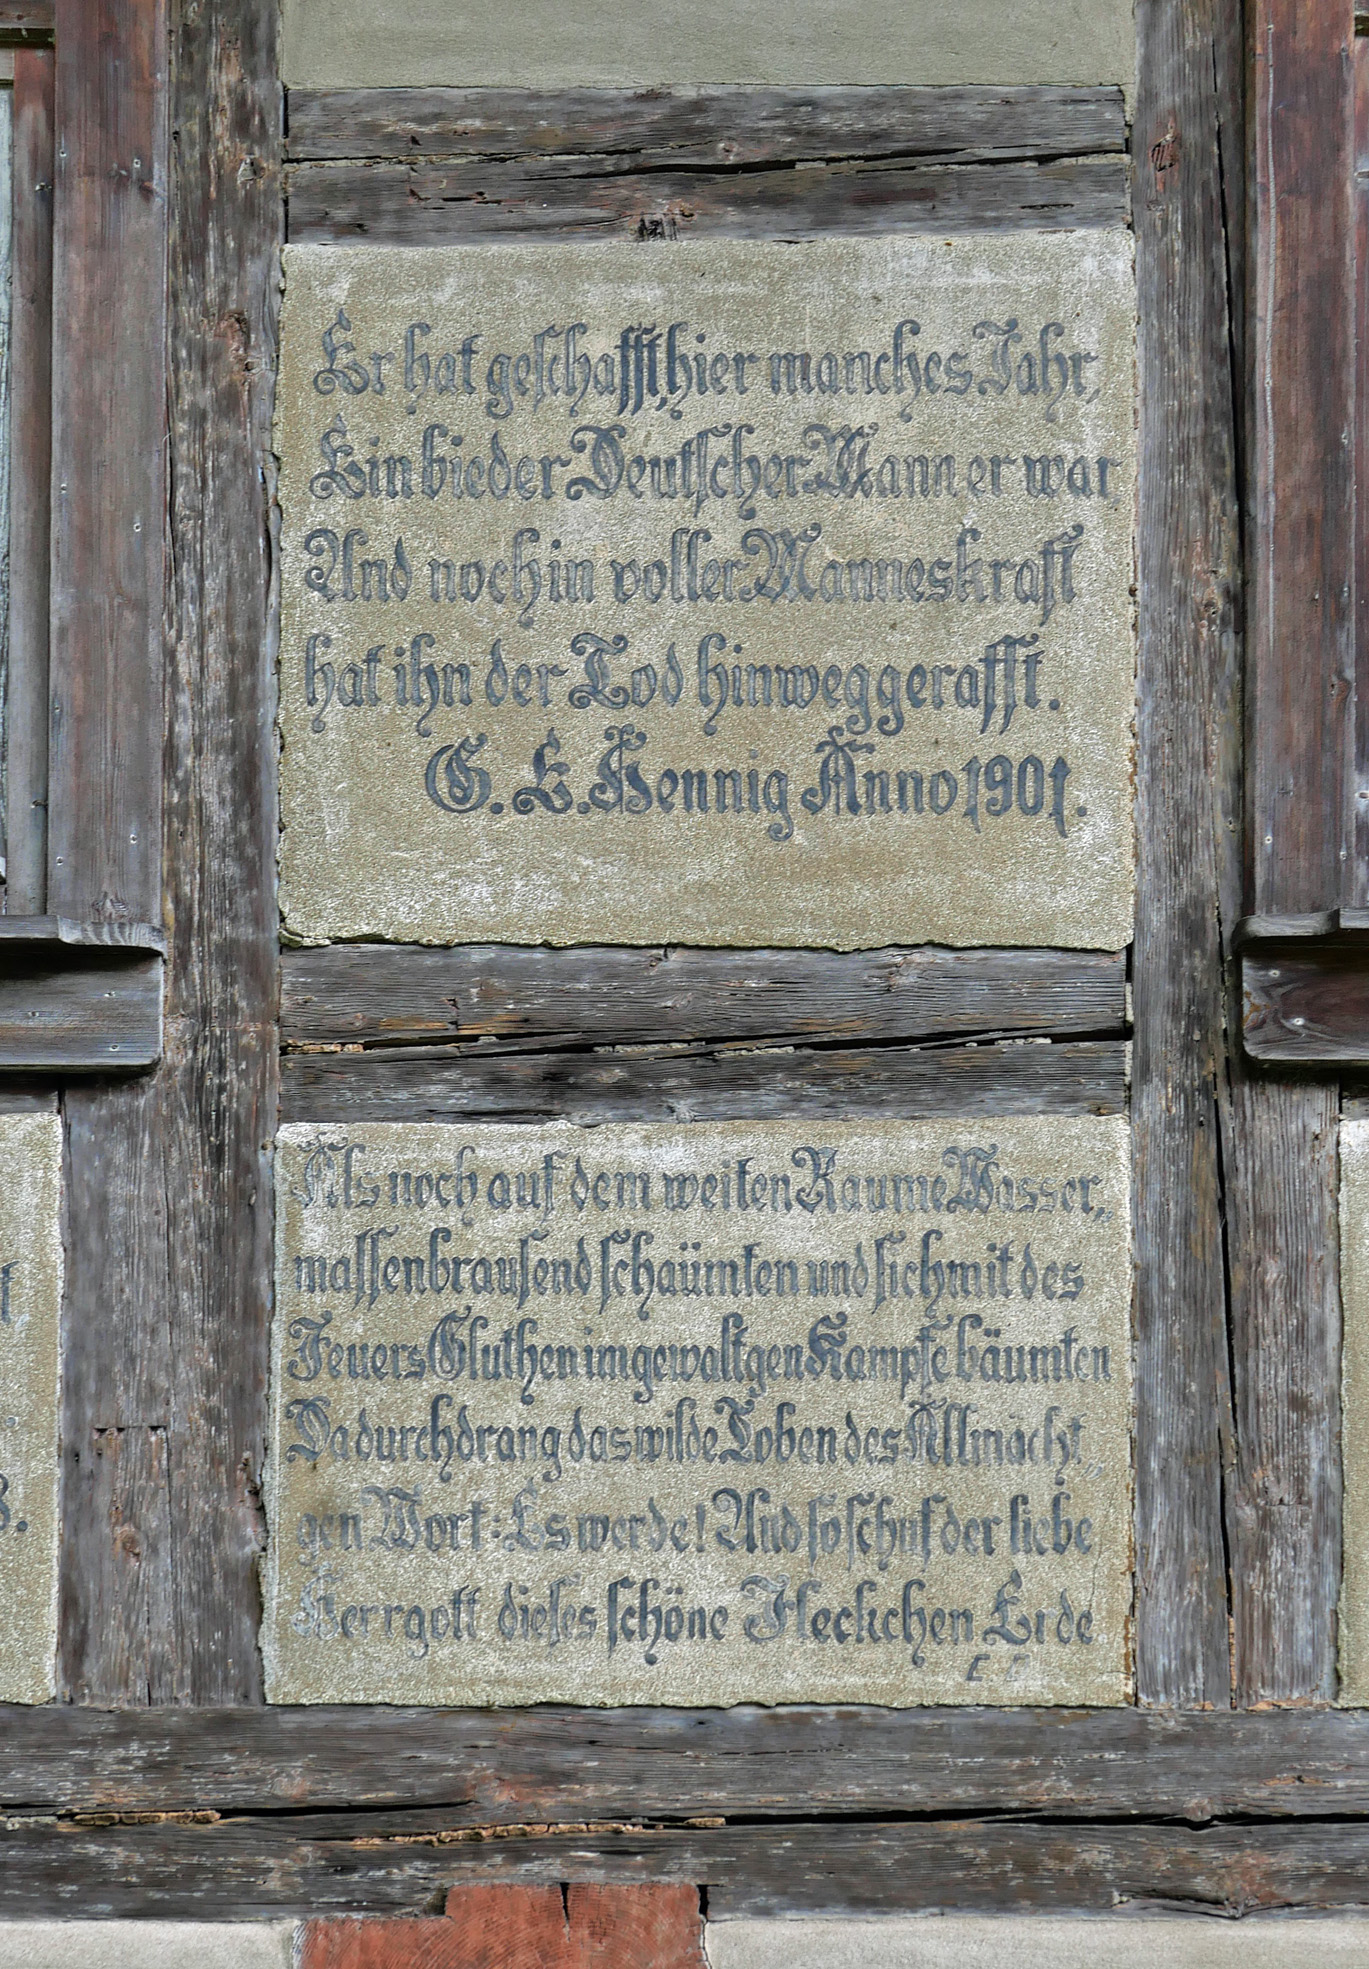 Er hat geschafft, hier manches Jahr,
Ein bieder Deutscher Mann er war
Und noch in voller Manneskraft
hat ihn der Tod hinweggerafft.
G. E. Hennig Anno 1901.
Als noch auf dem weiten Raume Wasser„
massen brausend schäumten und sich mit des
Feuers Gluthen im gewaltgen Kampfe bäumten
Da durchdrang das wilde Toben des Allmächt„
gen Wort: Es werde! Und so schuf der liebe
Herrgott dieses schöne Fleckchen Erde